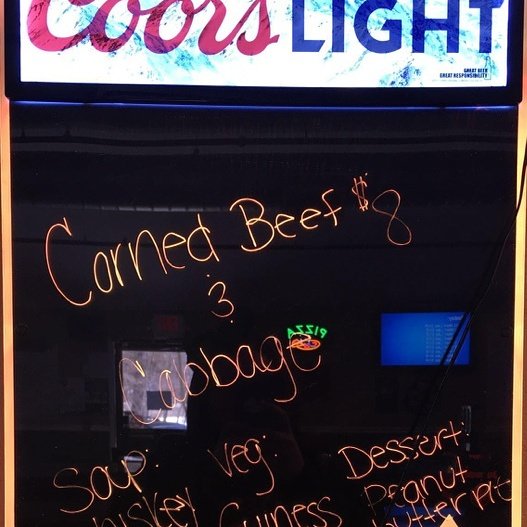 Coors LIGHT
GREAT BEER
GREAT RESPONSIBILITY
Corned Beef $8
&
Cabbage
PIZZA
Soup: Veg: Dessert:
hiskey Guiness Peanut
utter Pie